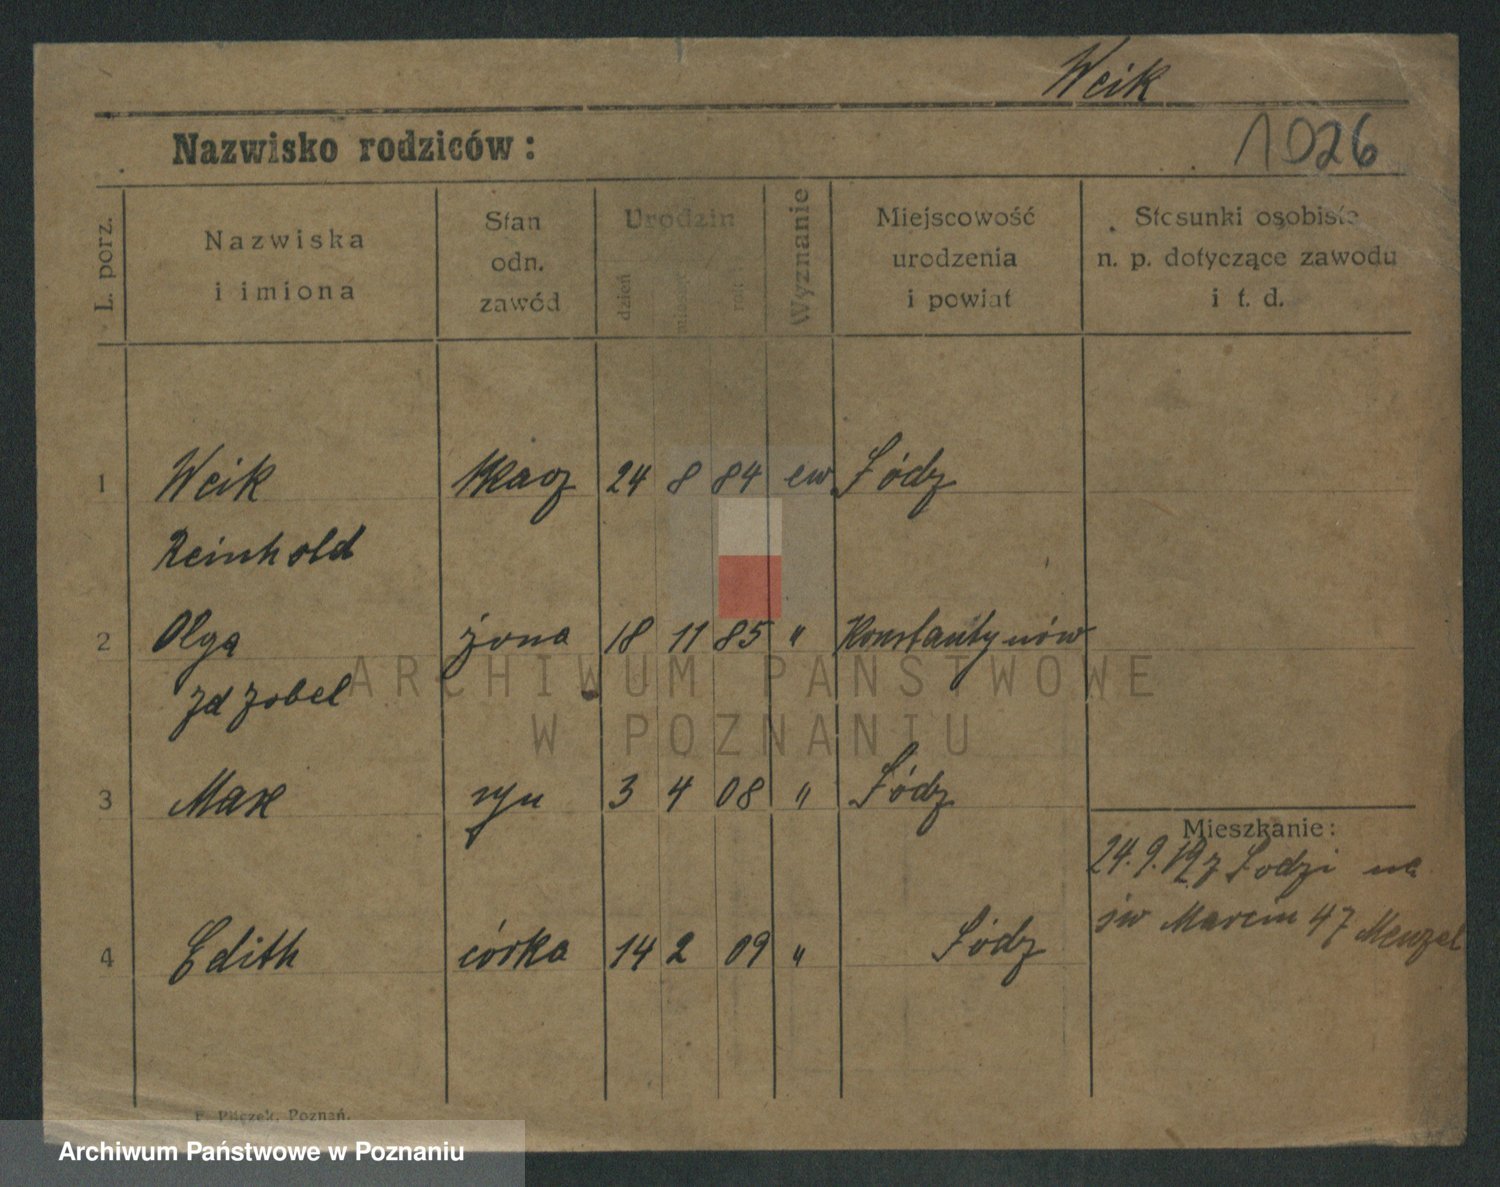 Weik
1026
Nazwisko rodziców:
L. porz.
Nazwiska
i imiona
Stan
odn.
zawód
Urodzin
dzień
Wyznanie
Miejscowość
urodzenia
i powiat
Stosunki osobiste
n. p. dotyczące zawodu
i t. d.
1 Weik tkacz 24 8 84 ew Łódz
Reinhold
2 Olga żona 18 11 85 " Konstantynów
zd Zobel
3 Max syn 3 4 08 " Łódz
Mieszkanie:
24.9.19 z Łodzi na
św Marcin 47 Menzel
4 Edith córka 14 2 09 " Łódz
ARCHIWUM PAŃSTWOWE
W POZNANIU
Poznań.
Archiwum Państwowe w Poznaniu